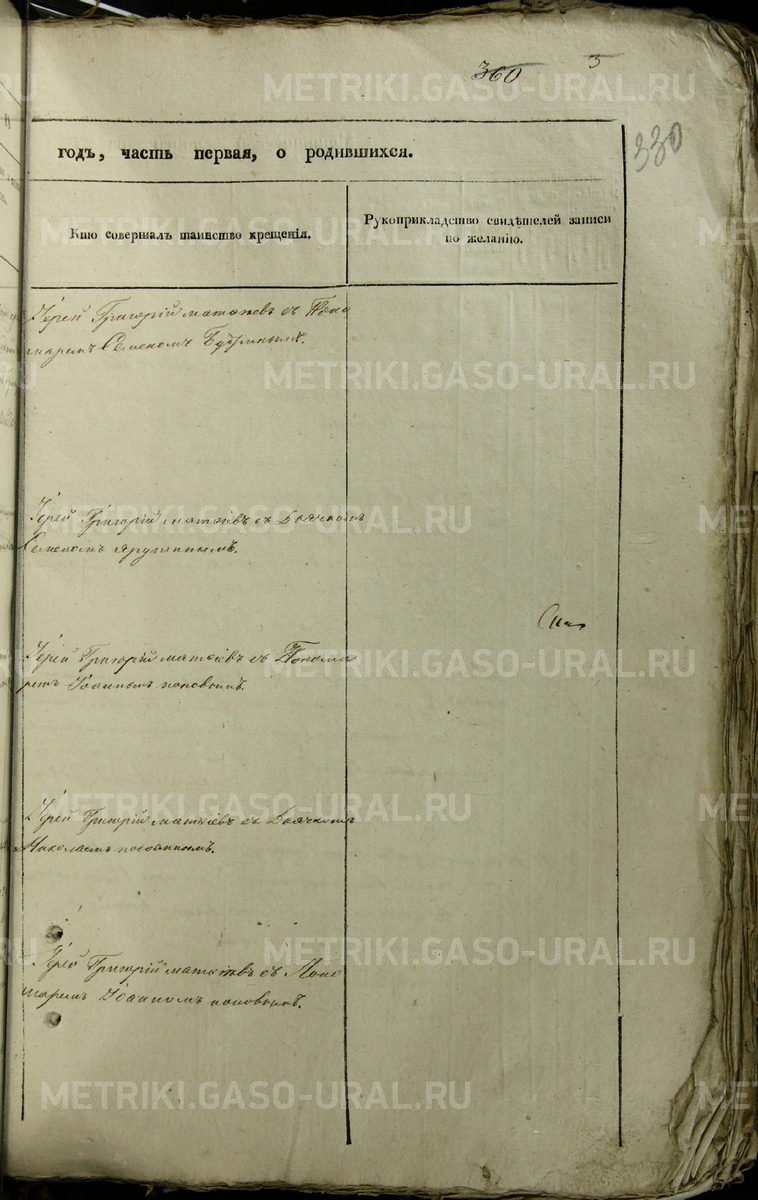 360 5
330
годъ, часть первая, о родившихся.
Кто совершалъ таинство крещенія.
Рукоприкладство свидѣтелей записи
по желанію.
Іерей Григорій Матѳіевъ съ Поно
маремъ Семеномъ
Іерей Григорій Матѳіевъ съ Дьячкомъ
Семеномъ Ярушинымъ.
Іерей Григорій Матѳіевъ съ Понома
ремъ Іоанномъ Поповымъ.
Іерей Григорій Матѳіевъ съ Дьячкомъ
Николаемъ
Іерей Григорій Матѳіевъ съ Поно
маремъ Іоанномъ Поповымъ.
METRIKI.GASO-URAL.RU